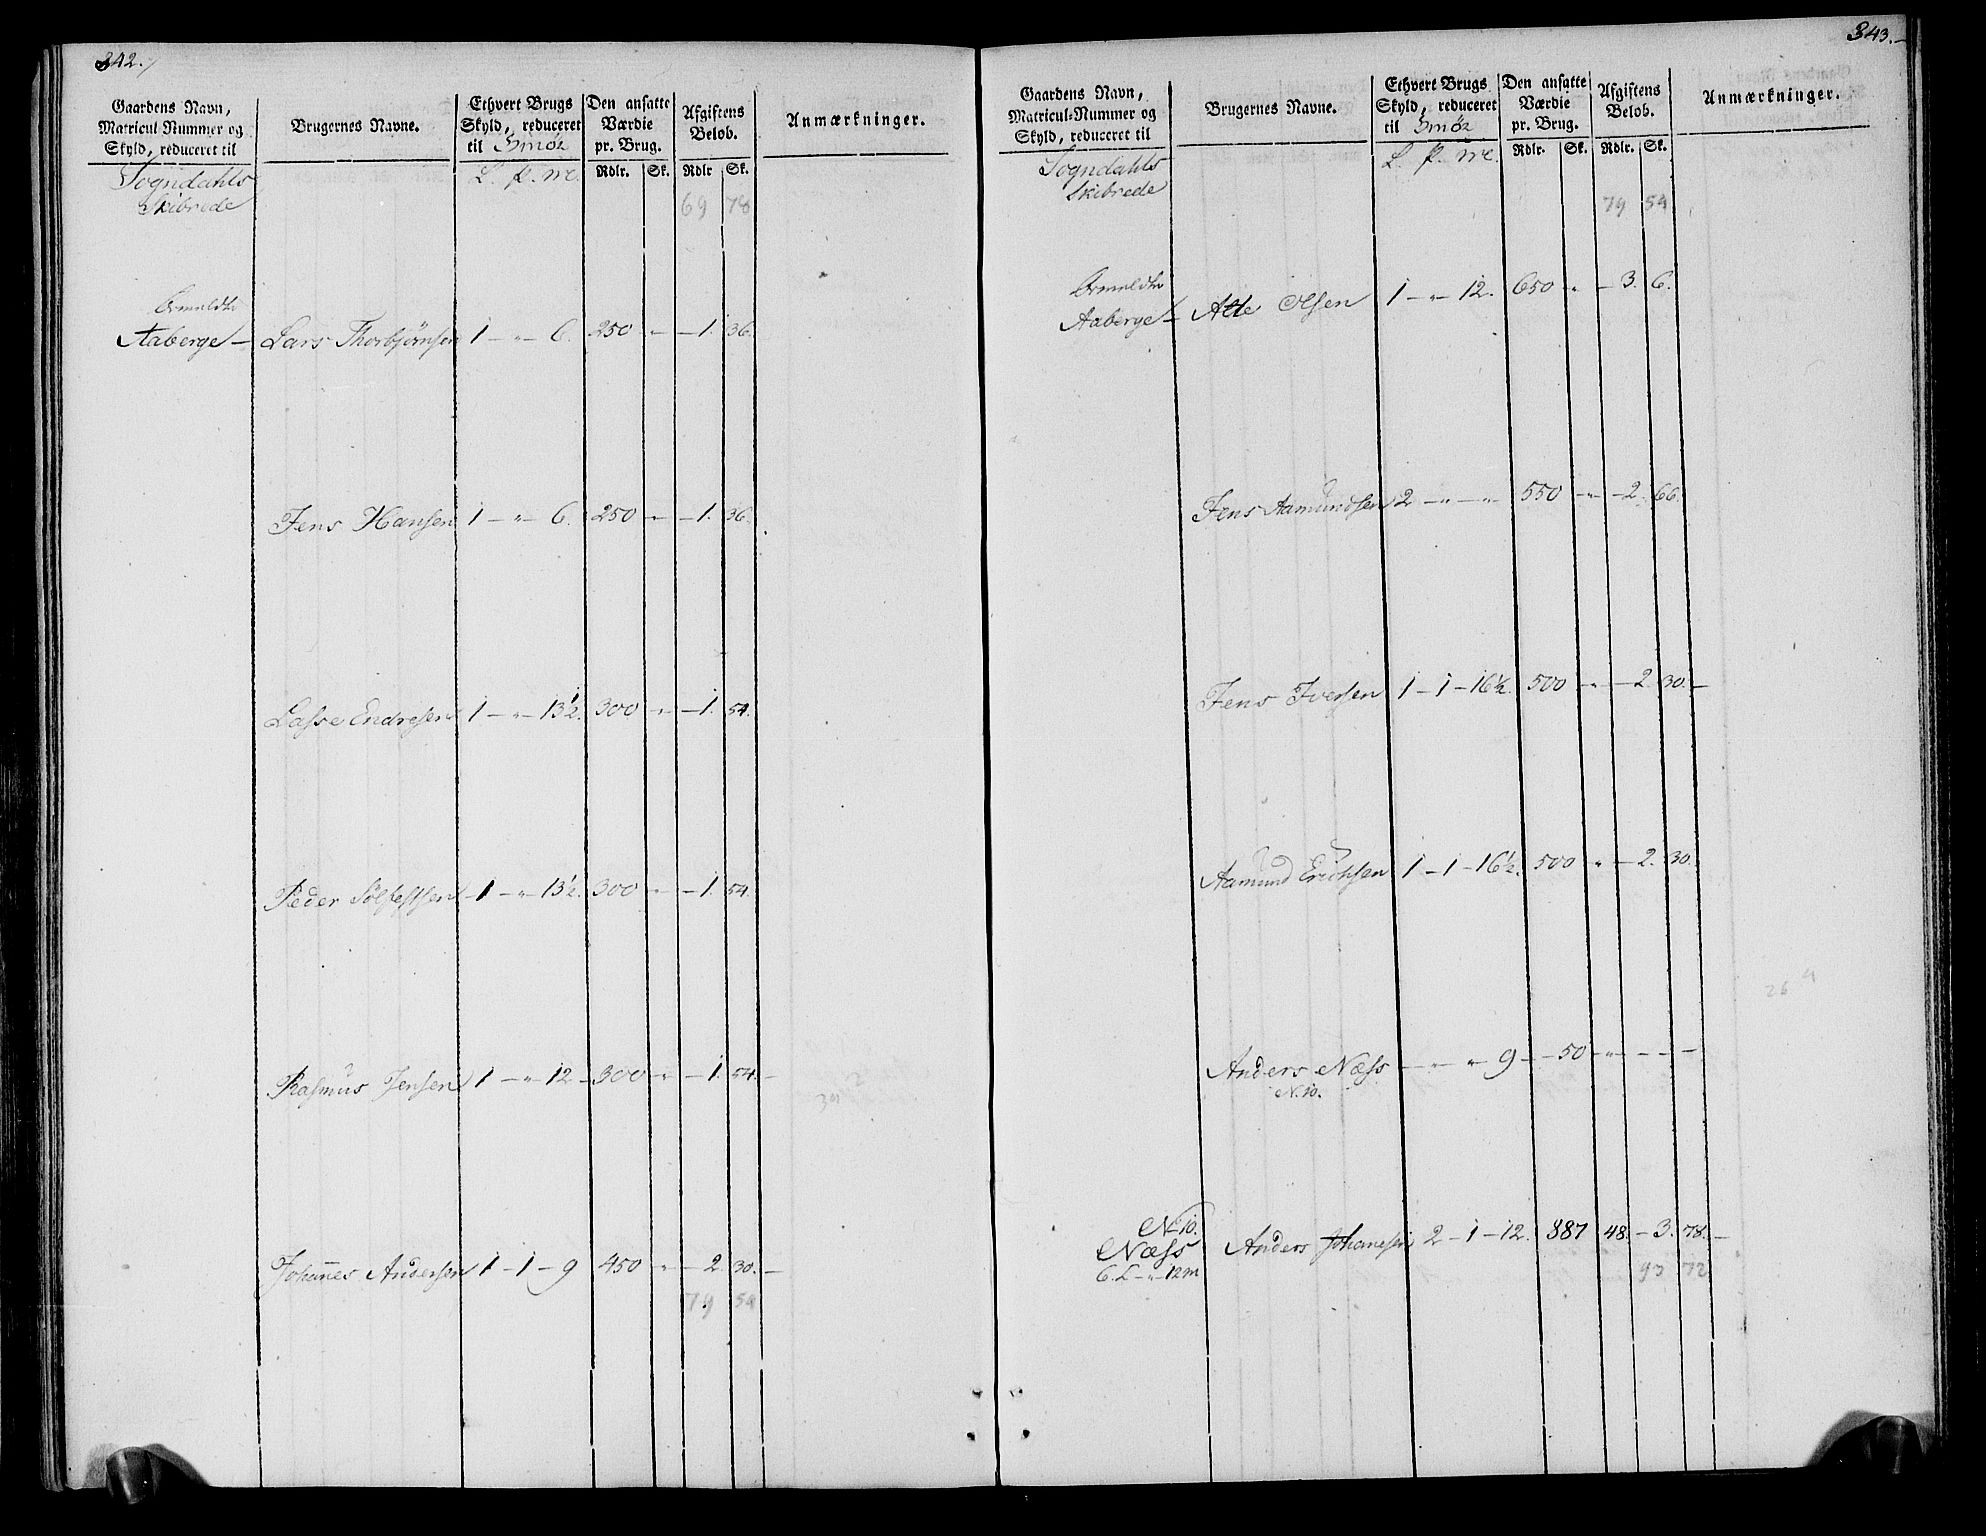 342.
Gaardens Navn,
Matricul Nummer og
Skyld, reduceret til
Brugernes Navne.
Ethvert Brugs
Skyld, reduceret
til Smør
Den ansatte
Værdie
pr. Brug.
Afgiftens
Beløb.
Anmærkninger.
L. p. m.
Rdlr. Sk. Rdlr Sk.
Sogndahls
Skibrede
69 78
Aaberge — Lars Thorbjörnsen 1 — „ — 6. 250 „ — 1. 36.
Jens Hansen 1 — „ — 6. 250 „ — 1. 36.
Lasse Endresen 1 — „ — 13½. 300 „ — 1. 54.
Peder Sölfestsen 1 — „ — 13½. 300 „ — 1. 54.
Rasmus Jensen 1 — „ — 12 — 300 „ — 1. 54. —
Johannes Andersen 1 — 1 — 9 450 „ — 2. 30. —
79 54
343. —
Gaardens Navn,
Matricul-Nummer og
Skyld, reduceret til
Brugernes Navne.
Ethvert Brugs
Skyld, reduceret
til Smør
Den ansatte
Værdie
pr. Brug.
Afgiftens
Beløb.
Anmærkninger.
L. p. m.
Rdlr. Sk. Rdlr. Sk.
Sogndahls
Skibrede
79 54
Aaberge — Atle Olsen 1 — „ — 12. 650 „ — 3. 6.
Jens Aamundsen 2 — „ — „ 550 — „ — 2. 66.
Jens Iversen 1 — 1 — 16½. 500 „ — 2. 30. —
Aamund Erichsen 1 — 1 — 16½. 500 „ — 2. 30.
26 4
Anders Næss — „ — „ 9 — 50 — „ — — —
N. 10.
No 10.
Næss Anders Johanesen 2 — 1 — 12. 887 48. — 3. 78. —
6. L — „ — 12 m
93 72